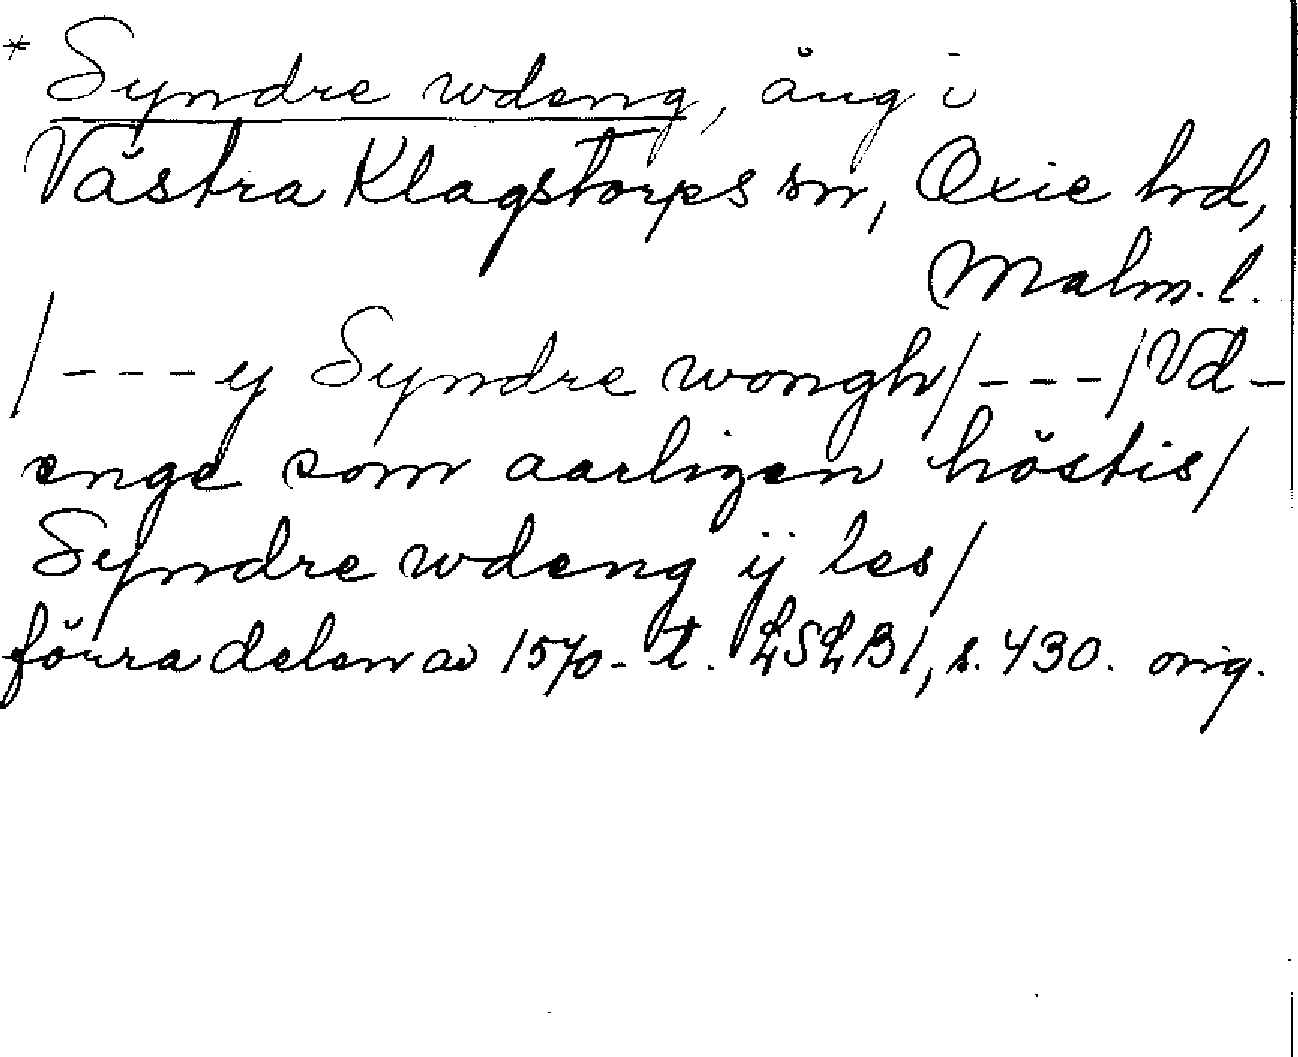 * Syndre wdeng, äng i
Västra Klagstorps sn, Oxie hd,
Malm. l.
/ - - - y Syndre wongh / - - - / Vd-
enge som aarligen höstis /
Syndre wdeng ij les /
förra delen av 1570-t. LSLB 1, s. 430. orig.